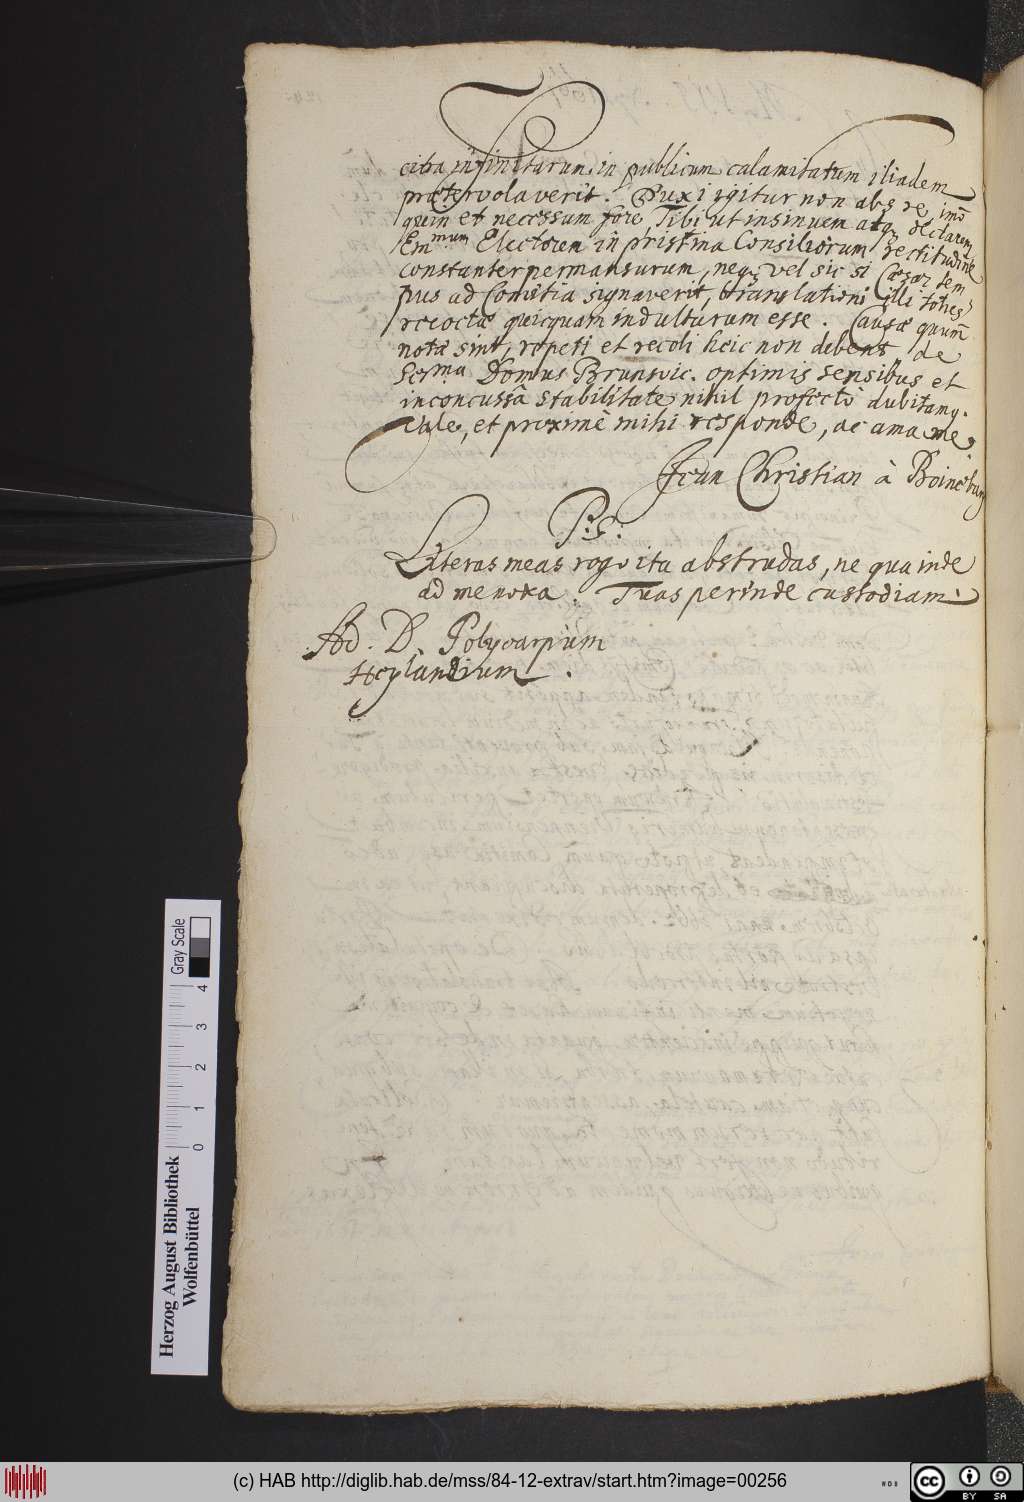 cita infinitarum in publicum calamitatum iliadem
prætervolaverit. Duxi igitur non abs re, imò
quin et necessum fore, Tibi ut insinuem atq; declarem
Em̄mum Electorem in pristina Consiliorum rectitudine
constanter permansurum, neq; vel sic si Cæsar tem
pus ad Comitia signaverit, translationi illi toties
recoctæ quicquam indulturum esse. Causæ quum
notæ sint, repeti et recoli heic non debent, de
Serma Domus Brunsvic. optimis sensibus et
inconcussâ stabilitate nihil profectò dubitamq.
Vale, et proximè mihi responde, ac ama me,
Jean Christian à Boineburg
P. S.
Literas meas rogo ita abstrudas, ne qua inde
ad me noxa. Tuas perinde custodiam.
Ad. D. Polycarpum
Heylandium.
Herzog August Bibliothek
Wolfenbüttel
0 1 2 3 4
Gray Scale
(c) HAB http://diglib.hab.de/mss/84-12-extrav/start.htm?image=00256
cc BY SA